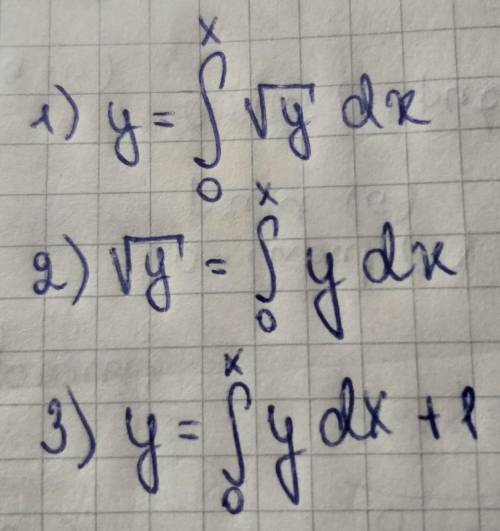 1) y = ∫₀ˣ √y dx
2) √y = ∫₀ˣ y dx
3) y = ∫₀ˣ y dx + 1